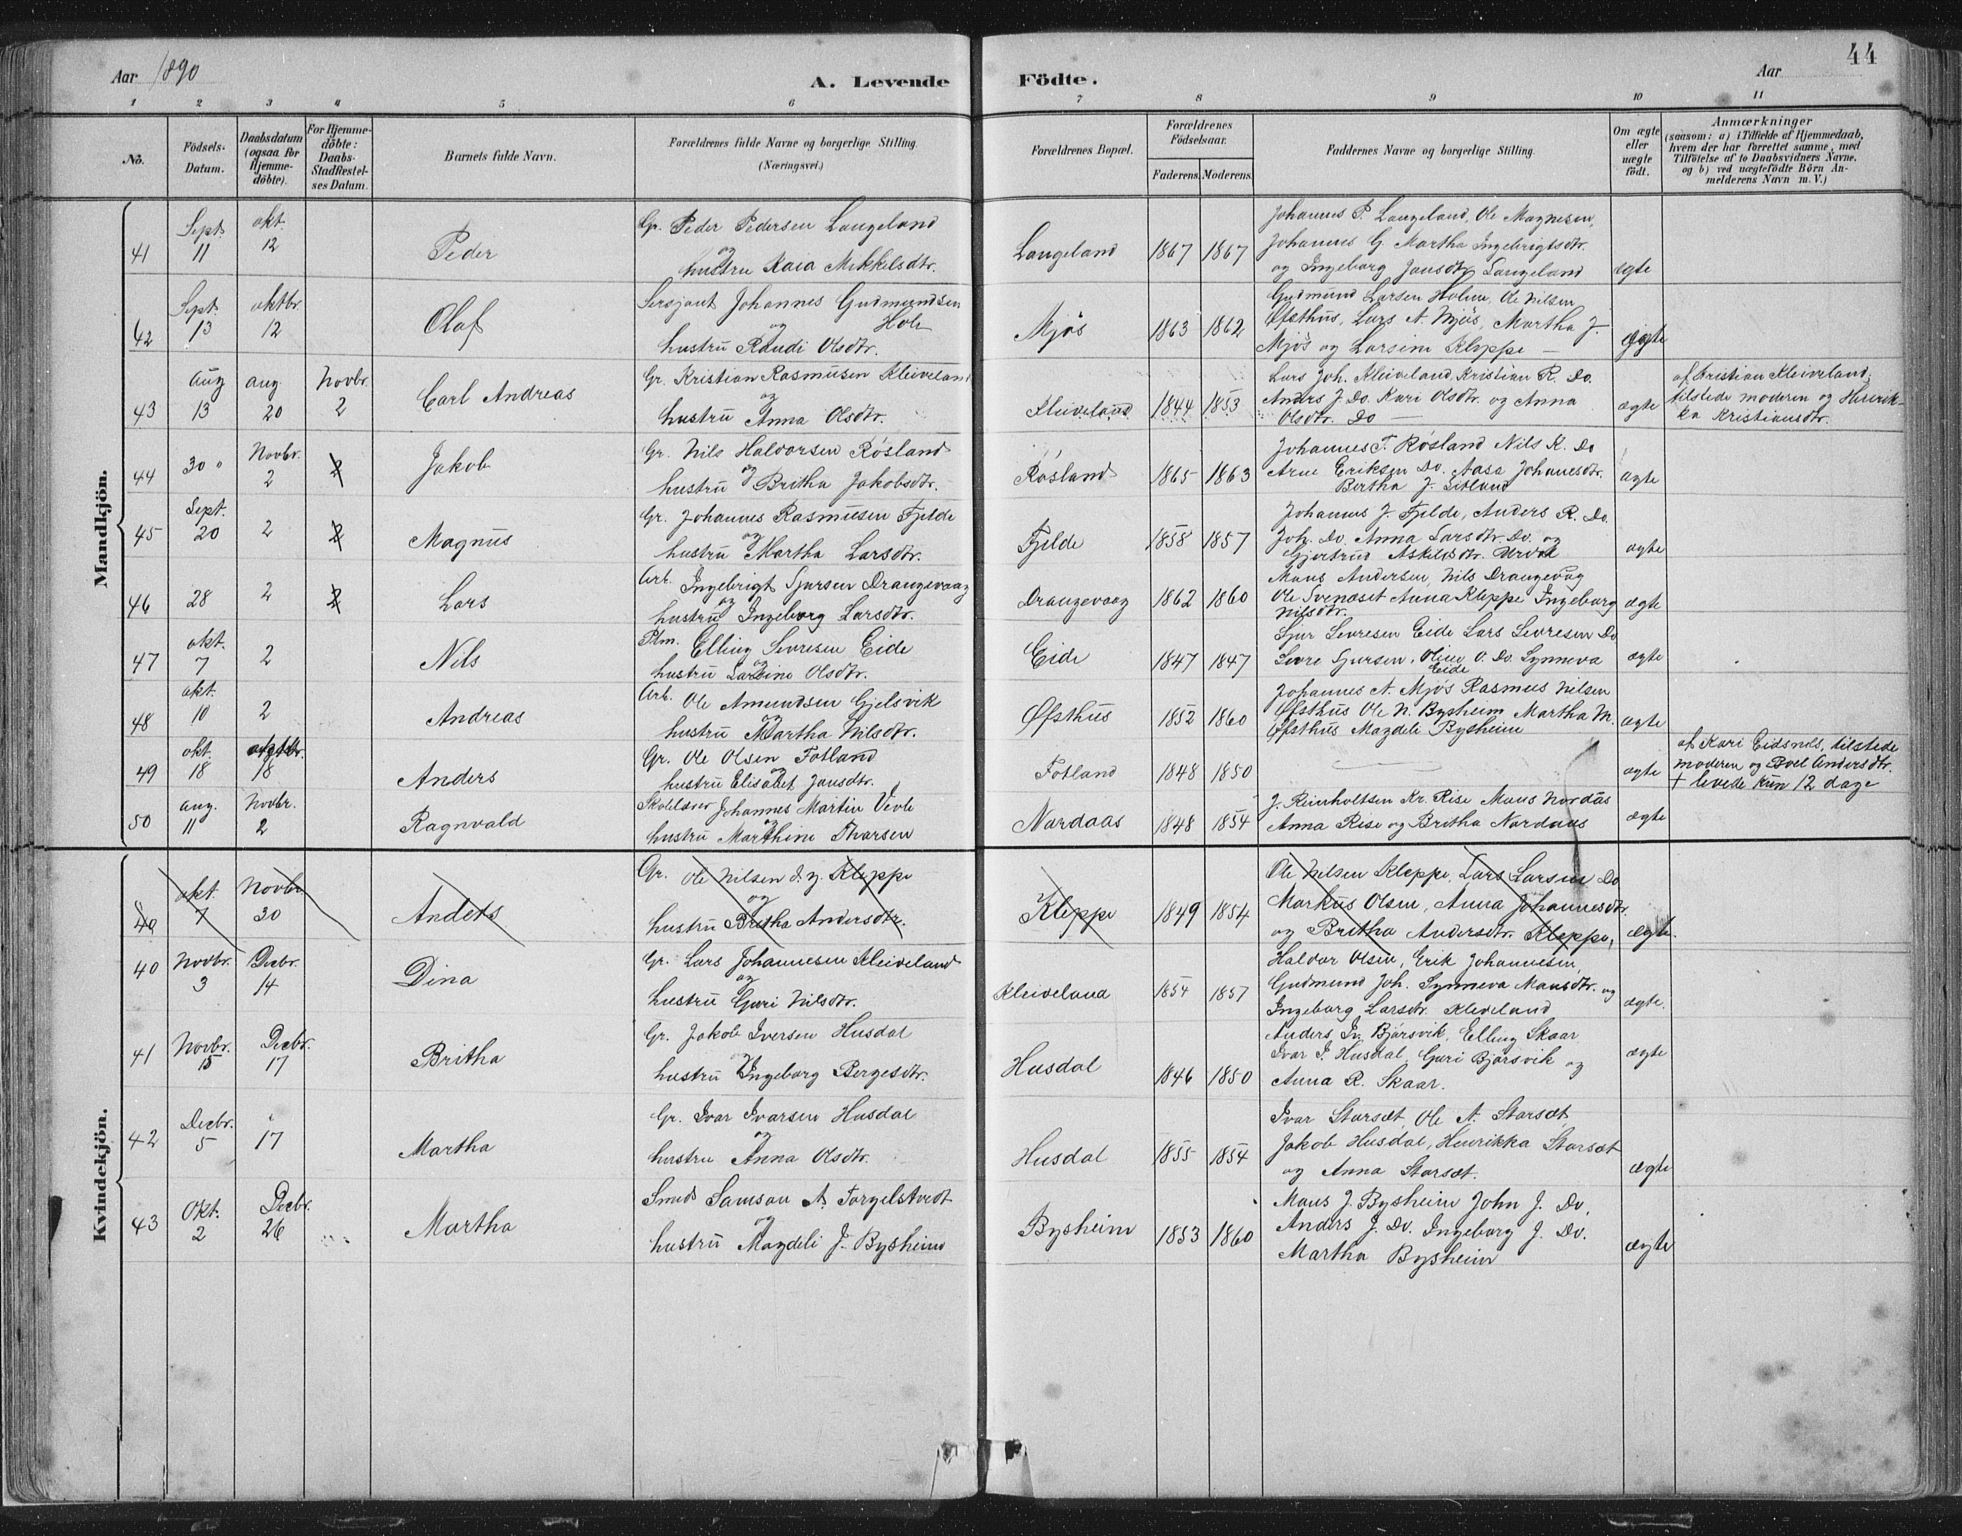 44
Aar 1890
A. Levende Födte.
Aar
1 2 3 4 5 6 7 8 9 10 11
No.
Födsels-
Datum.
Daabsdatum
(ogsaa for
Hjemme-
döbte).
For Hjemme-
döbte:
Daabs-
Stadfæstel-
ses Datum.
Barnets fulde Navn.
Forældrenes fulde Navne og borgerlige Stilling.
(Næringsvei.)
Forældrenes Bopæl.
Forældrenes
Födselsaar.
Faderens. Moderens.
Faddernes Navne og borgerlige Stilling.
Om ægte
eller
uægte
födt.
Anmærkninger
(saasom: a) i Tilfælde af Hjemmedaab,
hvem der har forrettet samme, med
Tilföielse af to Daabsvidners Navne.
og b) ved uægtefödte Börn An-
melderens Navn m. V.)
Mandkjön.
41
Sept.
11
okt.
12
Peder
Gr. Peder Pedersen Langeland
og
hustru Kaia Mikkelsdtr.
Langeland
1867 1867
Johannes P. Langeland, Ole Magnesen,
Johannes G Martha Ingebrigtsdtr.
og Ingeborg Jonsdtr Langeland
ægte
42
Sept.
13
oktbr.
12
Olaf
Sersjant Johannes Gudmundsen
og Holm
hustru Randi Olsdtr.
Mjøs
1863 1862
Gudmund Larsen Holm, Ole Nilsen
Øfsthus, Lars A. Mjøs, Martha J.
Mjøs og Larsine Kleppe —
ægte
43
Aug
13
aug.
20
Novbr.
2
Carl Andreas
Gr. Kristian Rasmusen Kleiveland
og
hustru Anna Olsdtr.
Kleiveland
1844 1853
Lars Joh. Kleiveland, Kristian R. Do.
Anders J. Do. Kari Olsdtr. og Anna
Olsdtr. Do —
ægte
af Kristian Kleiveland,
tilstede moderen og Henrik-
ka Kristiansdtr.
44
30 "
Novbr.
2
2
Jakob
Gr. Nils Halvorsen Røsland
og
hustru Britha Jakobsdtr.
Røsland
1865 1863
Johannes T. Røsland Nils K. Do
Arne Eriksen Do. Aasa Johanesdtr.
Bertha J.
ægte
45
Sept.
20
2
2
Magnus
Gr. Johannes Rasmusen Fjelde
og
hustru Martha Larsdtr.
Fjelde
1858 1857
Johannes J. Fjelde, Anders R. Do.
Joh. Do. Anna Larsdtr. Do. og
Gjertrud Askilsdtr.
ægte
46
28
2
2
Lars
Arb. Ingebrigt Sjursen Drangevaag
og
hustru Ingeborg Larsdtr.
Drangevaag
1862 1860
Mons Andersen, Nils Drangevog
Ole Svenæset Anna Kleppe Ingeborg
Nilsdtr.
ægte
47
okt.
7
2
Nils
Plm. Elling Sevresen Eide
og
hustru Larsine Olsdtr.
Eide
1847 1847
Sjur Sevresen Eide Lars Sevresen Do
Sevre Sjursen, Oline O. Do. Synneva
Eide
ægte
48
okt.
10
2
Andreas
Arb. Ole Amundsen Gjelsvik
og
hustru Martha Nilsdtr.
Øfsthus
1852 1860
Johannes A. Mjøs Rasmus Nilsen
Øfsthus Ole N. Bysheim Martha M.
Øfsthus Magdeli Bysheim
ægte
49
okt.
18
18
Anders
Gr. Ole Olsen Fotland
og
hustru Elisabet Jonsdtr.
Fotland
1848 1850
ægte
af Kari Eidsnes, tilstede
moderen og Andersdtr.
+ levede kun 12 dage
50
aug.
11
Novbr.
2
Ragnvald
Johannes Martin Vevle
og
hustru Marthine Tharsen
Nordaas
1848 1854
J. Reinholtsen Kr. Rise Mons Nordås
Anna Rise og Britha Nordaas
ægte
Kvindekjön.
40
okt.
7
Novbr
30
Anders
Gr. Ole Nilsen d. y. Kleppe
og
hustru Britha Andersdtr.
Kleppe
1849 1854
Ole Nilsen Kleppe, Lars Larsen Do
Markus Olsen, Anna Johannesdtr.
og Britha Andersdtr. Kleppe,
ægte.
40
Novbr.
3
Decbr.
14
Dina
Gr. Lars Johannesen Kleiveland
og
hustru Guri Nilsdtr.
Kleiveland
1854 1857
Halvor Olsen, Erik Johannesen,
Gudmund Joh. Synneva Monsdtr. og
Ingeborg Larsdtr. Kleveland
ægte.
41
Novbr.
15
Decbr.
17
Britha
Gr. Jakob Iversen Husdal
og
hustru Ingeborg Bergesdtr.
Husdal
1846 1850
Anders Iv. Bjørsvik, Elling Skaar
Ivar J. Husdal, Guri Bjørsvik og
Anna R. Skaar.
ægte
42
Decbr.
5
17
Martha
Gr. Ivar Ivarsen Husdal
og
hustru Anna Olsdtr.
Husdal
1855 1854
Ivar Storsæt, Ole A. Storsæt,
Jakob Husdal, Henrikka Storsæt
og Anna Storsæt.
ægte
43
Okt.
2
Decbr.
26
Martha
Smed Samson A. Torgelstvedt
og
hustru Magdeli J. Bysheim
Bysheim
1853 1860
Mons J. Bysheim John J. Do.
Anders J. Do. Ingeborg J. Do.
Martha Bysheim
ægte